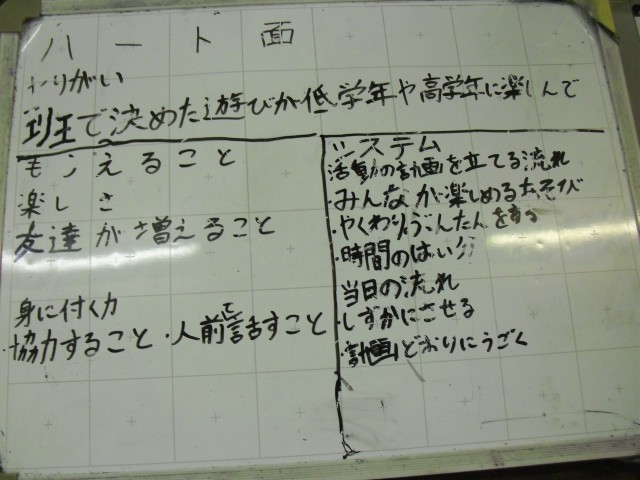 ハート面
やりがい
班で決めた遊びが低学年や高学年に楽しんで
もらえること
楽しさ
友達が増えること
身に付く力
・協力すること・人前で話すこと
システム
活動の計画を立てる流れ
・みんなが楽しめるあそび
・やくわりぶんたんを
・時間のはい分
当日の流れ
・しずかにさせる
・計画どおりにうごく